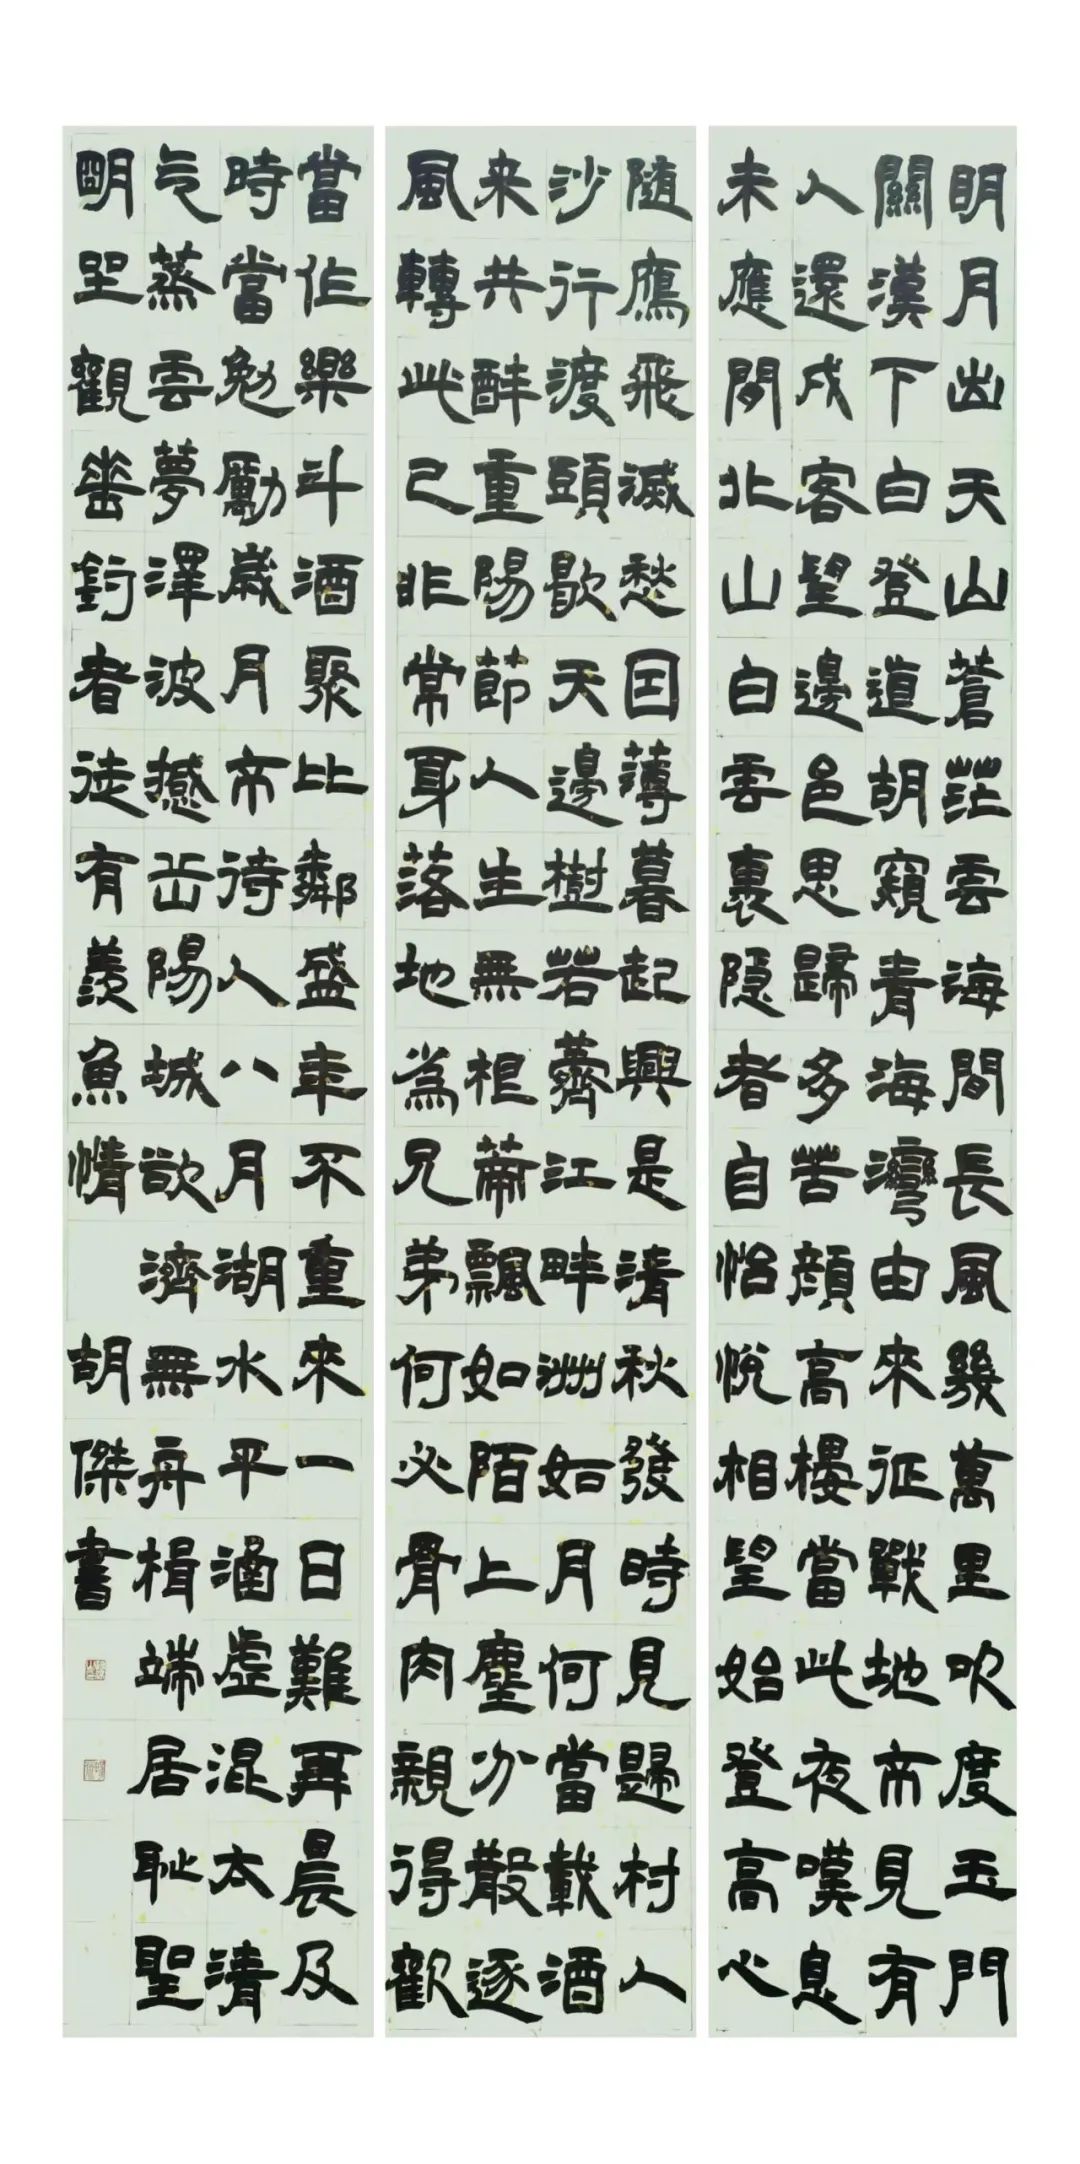 明月出天山蒼茫雲海間長風幾萬里吹度玉門
關漢下白登道胡窺青海灣由來征戰地不見有
人還戍客望邊邑思歸多苦顏高樓當此夜嘆息
未應閒北山白雲裏隱者自怡悅相望始登高心
隨鴈飛滅愁因薄暮起興是清秋發時見歸村人
沙行渡頭歇天邊樹若薺江畔洲如月何當載酒
来共醉重陽節人生無根蒂飄如陌上塵分散逐
風轉此已非常身落地為兄弟何必骨肉親得歡
當作樂斗酒聚比鄰盛年不重來一日難再晨及
時當勉勵歲月不待人八月湖水平涵虛混太清
气蒸雲夢澤波撼岳陽城欲濟無舟楫端居恥聖
明坐觀垂釣者徒有羨魚情 胡傑書